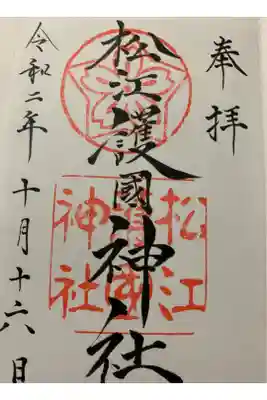 奉拝
松江護國神社
松江
護國
神社
令和二年十月十六日